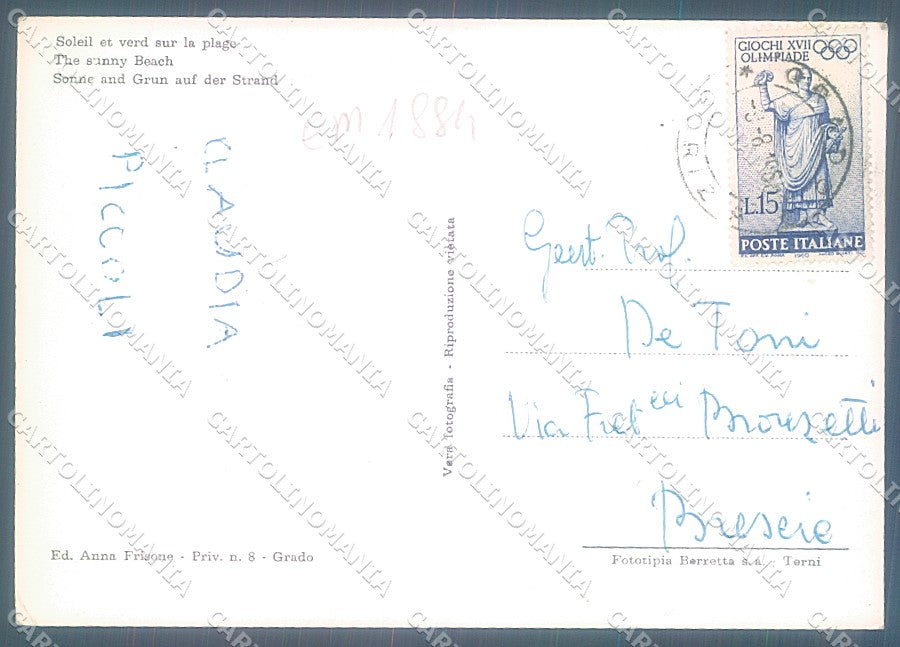 Soleil et verd sur la plage
The sunny Beach
Sonne and Grun auf der Strand
em 1884
CLAUDIA
PICCOLI
Vera fotografia - Riproduzione vietata
GIOCHI XVII
OLIMPIADE
L.15
POSTE ITALIANE
1960
Gent. Prof.
De Toni
Via Frat elli Bronzetti
Brescia
Ed. Anna Frisone - Priv. n. 8 - Grado
Fototipia Berretta s. a. - Terni
CARTOLINOMANIA